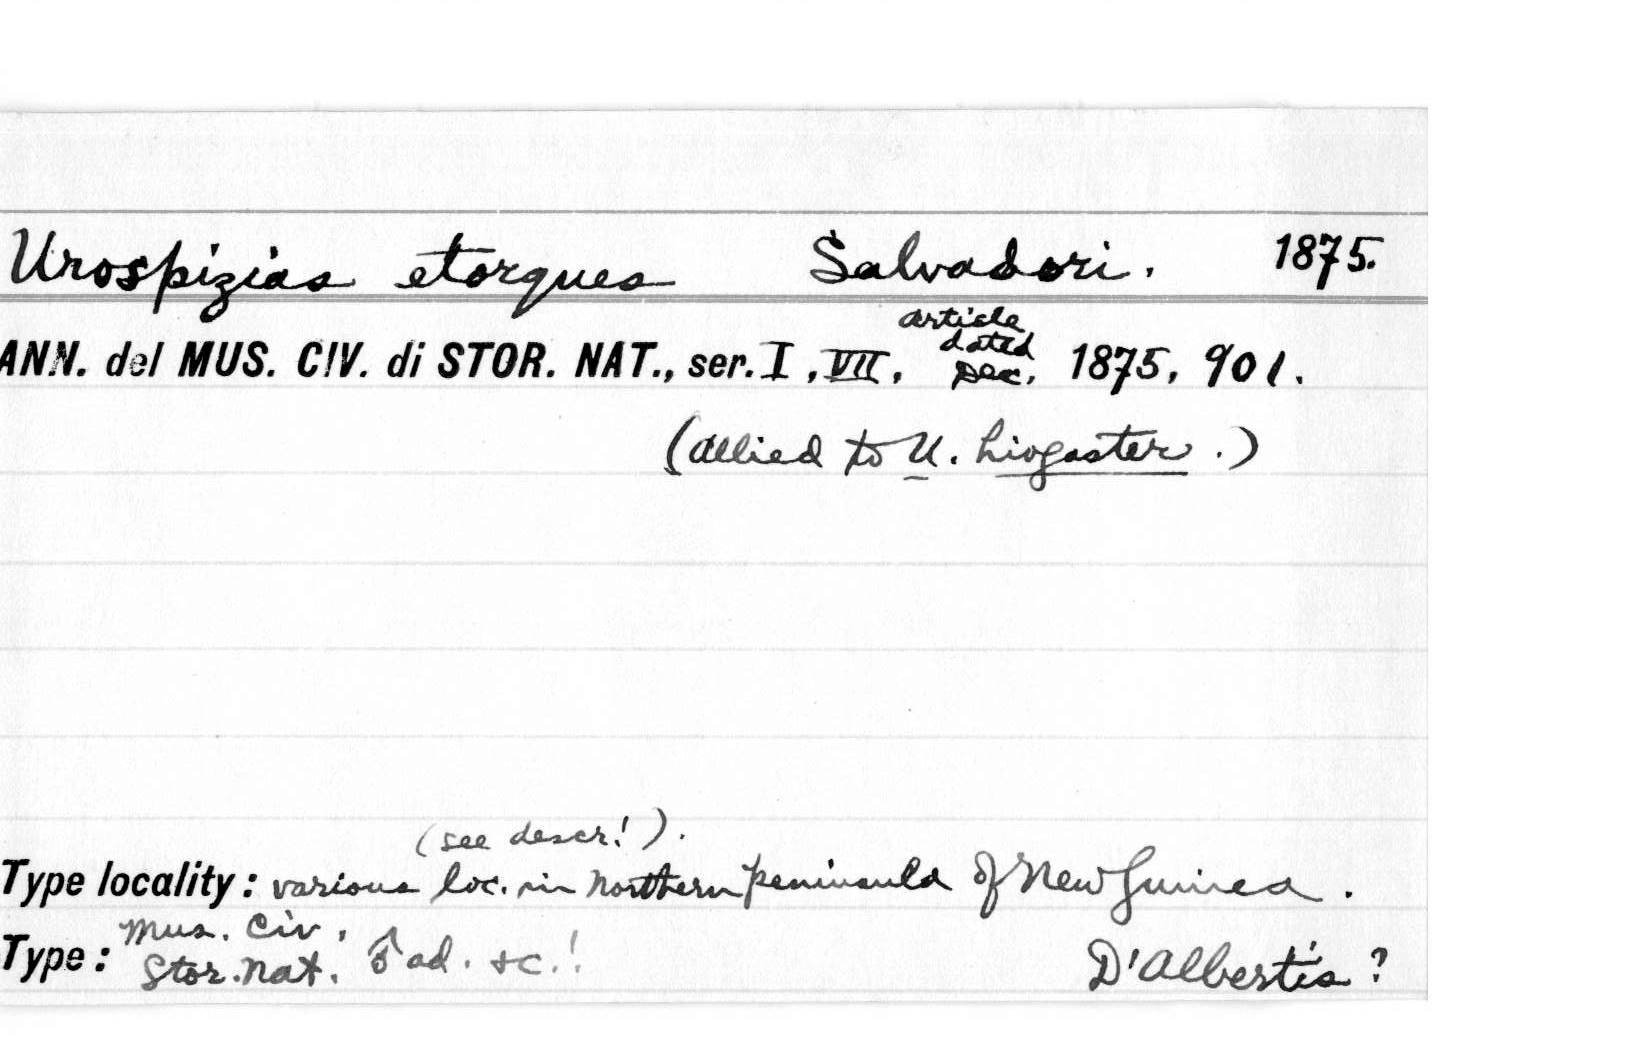 Urospizias etorques Salvadori. 1875.
ANN. del MUS. CIV. di STOR. NAT., ser. I, VII, article dated Dec. 1875, 901.
(allied to U. liogaster.)
(see descr.!).
Type locality: various loc. in northern peninsula of New Guinea.
Type: Mus. Civ. Stor. Nat. ♂ ad. &c.! D'Albertis?